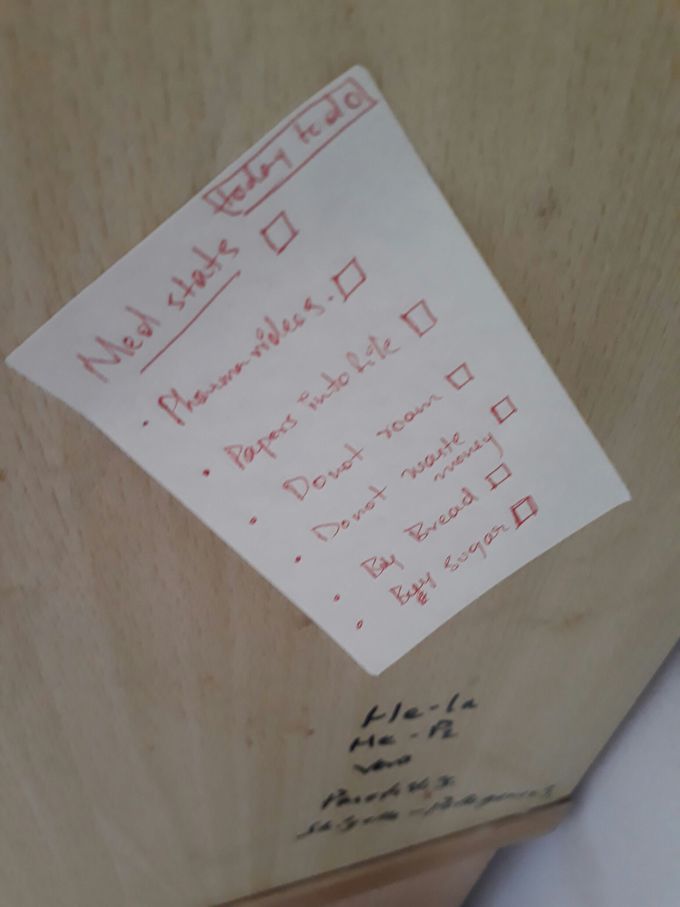 today to do
Med stats
• Pharma videos.
• Papers into file
• Donot roam
• Donot waste
money
• By Bread
• Buy sugar
He-la
He-P2
vero